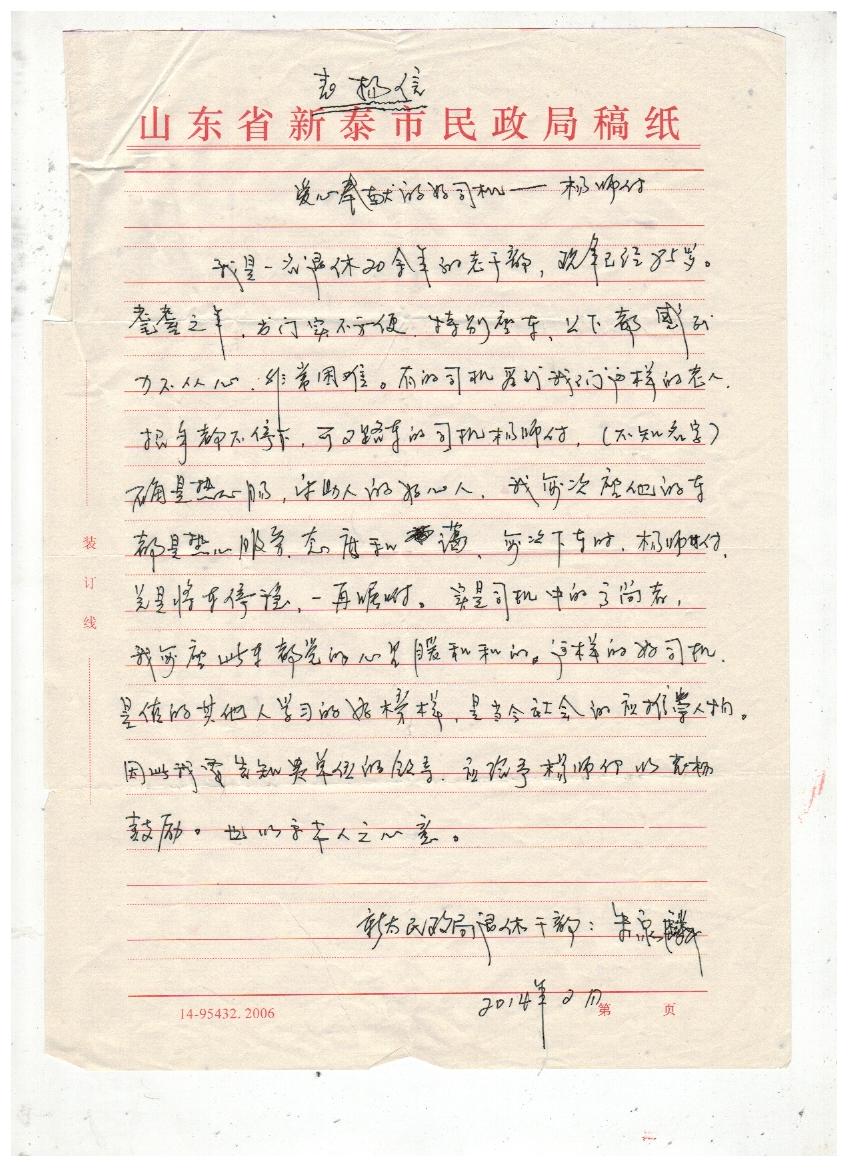 表扬信
山东省新泰市民政局稿纸
爱心奉献的好司机——杨师付
我是一名退休20余年的老干部，现年已经85岁。
耄耋之年，出门实不方便，特别座车，上下都感到
力不从心，非常困难。有的司机器到我们这样的老人，
招手都不停车，可2路车的司机杨师付，（不知名字）
确是热心肠，乐助人的好心人，我每次座他的车
都是热心服务，态度和蔼，每次下车时，杨师付，
总是将车停稳，一再嘱咐。实是司机中的高尚者，
我每座此车都觉的心里暖和和的。这样的好司机，
是值的其他人学习的好榜样，是当今社会的应推崇人物。
因此我要告知贵单位的领导，应给予杨师付以表扬
鼓励。也以示本人之心意。
新太民政局退休干部：
2014年2月
第 页
14-95432.2006
装
订
线